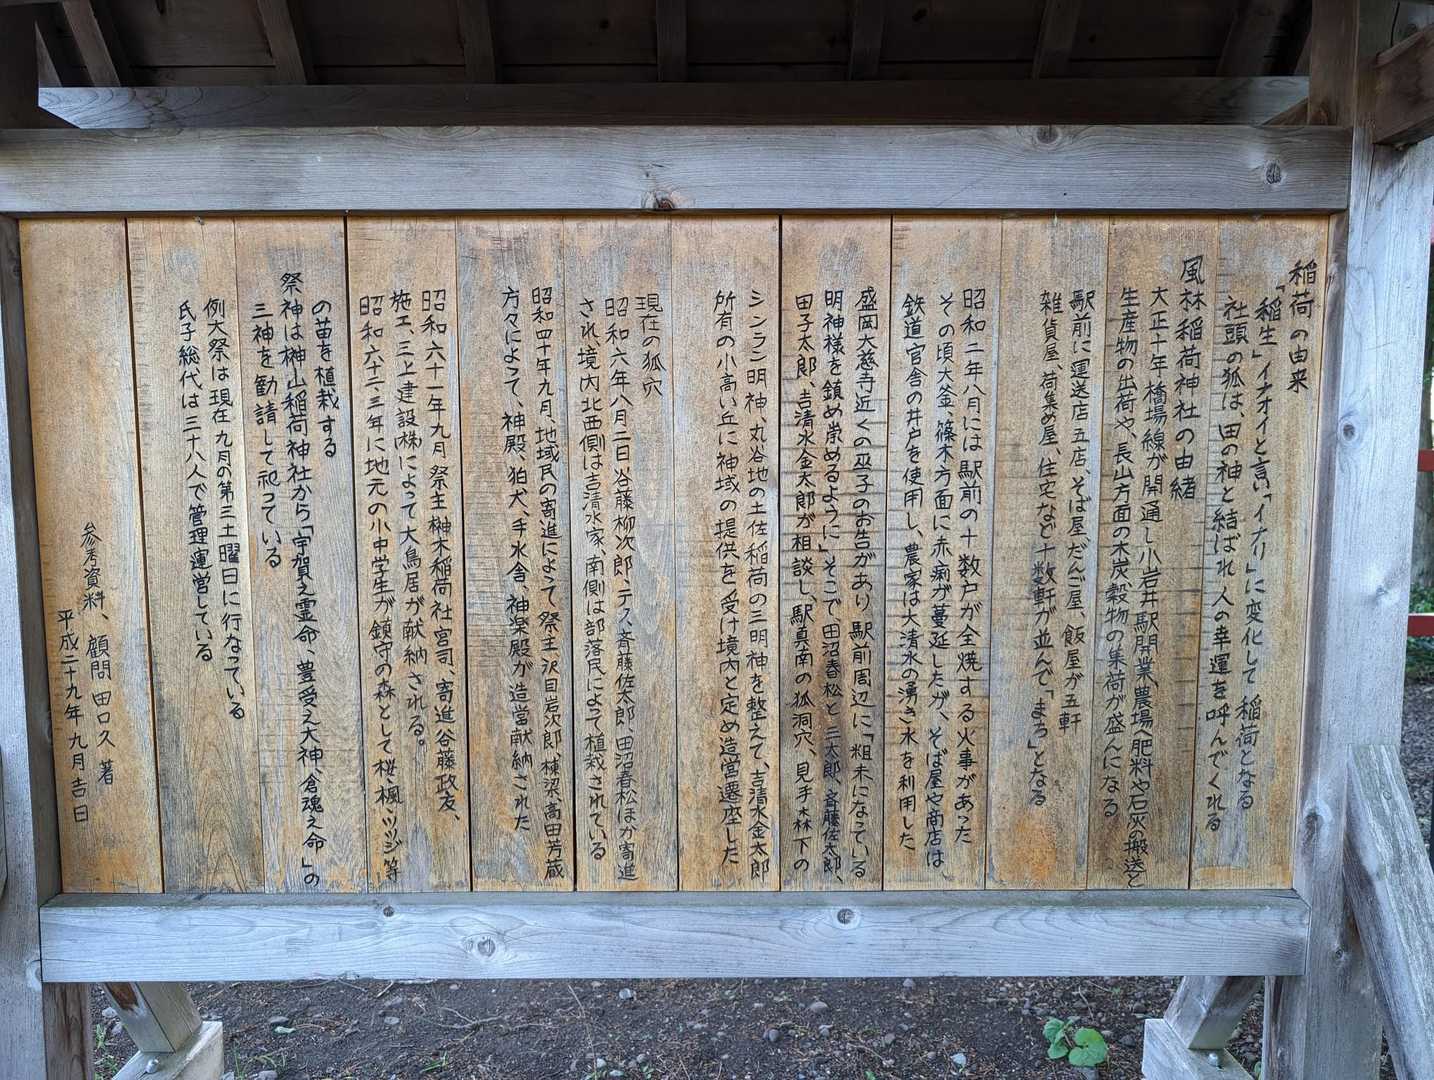 稲荷の由来
「稲生」イナオイと言い「イナリ」に変化して稲荷となる
社頭の狐は、田の神と結ばれ人の幸運を呼んでくれる
風林稲荷神社の由緒
大正十年橋場線が開通し小岩井駅開業、農場へ肥料や石灰の搬送と
生産物の出荷や、長山方面の木炭、穀物の集荷が盛んになる
駅前に運送店五店、そば屋、だんご屋、飯屋が五軒
雑貨屋、荷集め屋、住宅など十数軒が並んで「まち」となる
昭和二年八月には駅前の十数戸が全焼する火事があった
その頃大釜、篠木方面に赤痢が蔓延したが、そば屋や商店は
鉄道官舎の井戸を使用し、農家は大清水の湧き水を利用した
盛岡大慈寺近くの巫子のお告があり、駅前周辺に「粗末になっている
明神様を鎮め崇めるように」そこで田沼春松と三太郎、斉藤佐太郎、
田子太郎、吉清水金太郎が相談し、駅真南の狐洞穴、見手森下の
シンラン明神、丸谷地の土佐稲荷の三明神を整えて、吉清水金太郎
所有の小高い丘に神域の提供を受け境内と定め造営遷座した
現在の狐穴
昭和六年八月二日谷藤柳次郎、テス、斉藤佐太郎、田沼春松ほか寄進
され境内北西側は吉清水家、南側は部落民によって植栽されている
昭和四十年九月、地域民の寄進によって祭主沢目岩次郎、棟梁、高田芳蔵
方々によって、神殿、狛犬、手水舎、神楽殿が造営献納された
昭和六十一年九月祭主榊木稲荷社宮司、寄進谷藤政友、
施工、三上建設㈱によって大鳥居が献納される。
昭和六十三年に地元の小中学生が鎮守の森として桜、楓、ツツジ等
の苗を植栽する
祭神は榊山稲荷神社から「宇賀之霊命、豊受之大神、倉魂之命」の
三神を勧請して祀っている
例大祭は現在九月の第三土曜日に行なっている
氏子総代は三十八人で管理運営している
参考資料、顧問田口久著
平成二十九年九月吉日